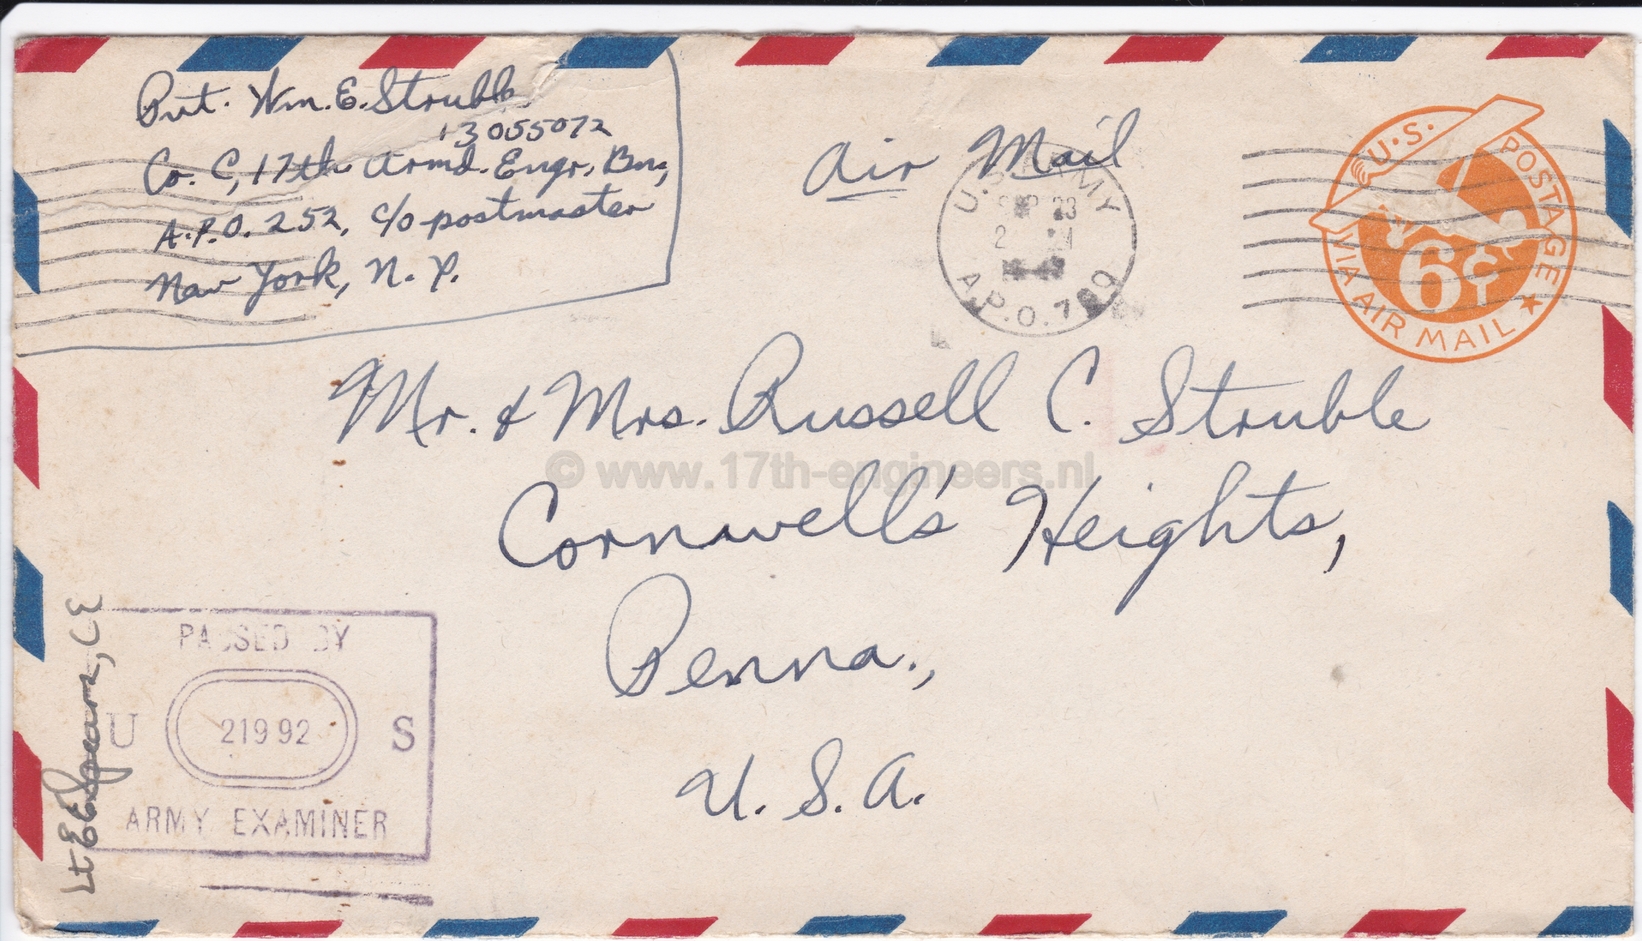 Pvt. Wm. E. Struble
13055072
Co. C, 17th Armd. Engr. Bn,
A.P.O. 252, c/o postmaster
New York, N. Y.
Air Mail
U.S. ARMY
23
A.P.O.
U.S. POSTAGE
6¢
VIA AIR MAIL
Mr. & Mrs. Russell C. Struble
© www.17th-engineers.nl
Cornwell's Heights,
Penna.,
U. S. A.
PASSED BY
U 21992 S
ARMY EXAMINER
Lt E E Spears, CE